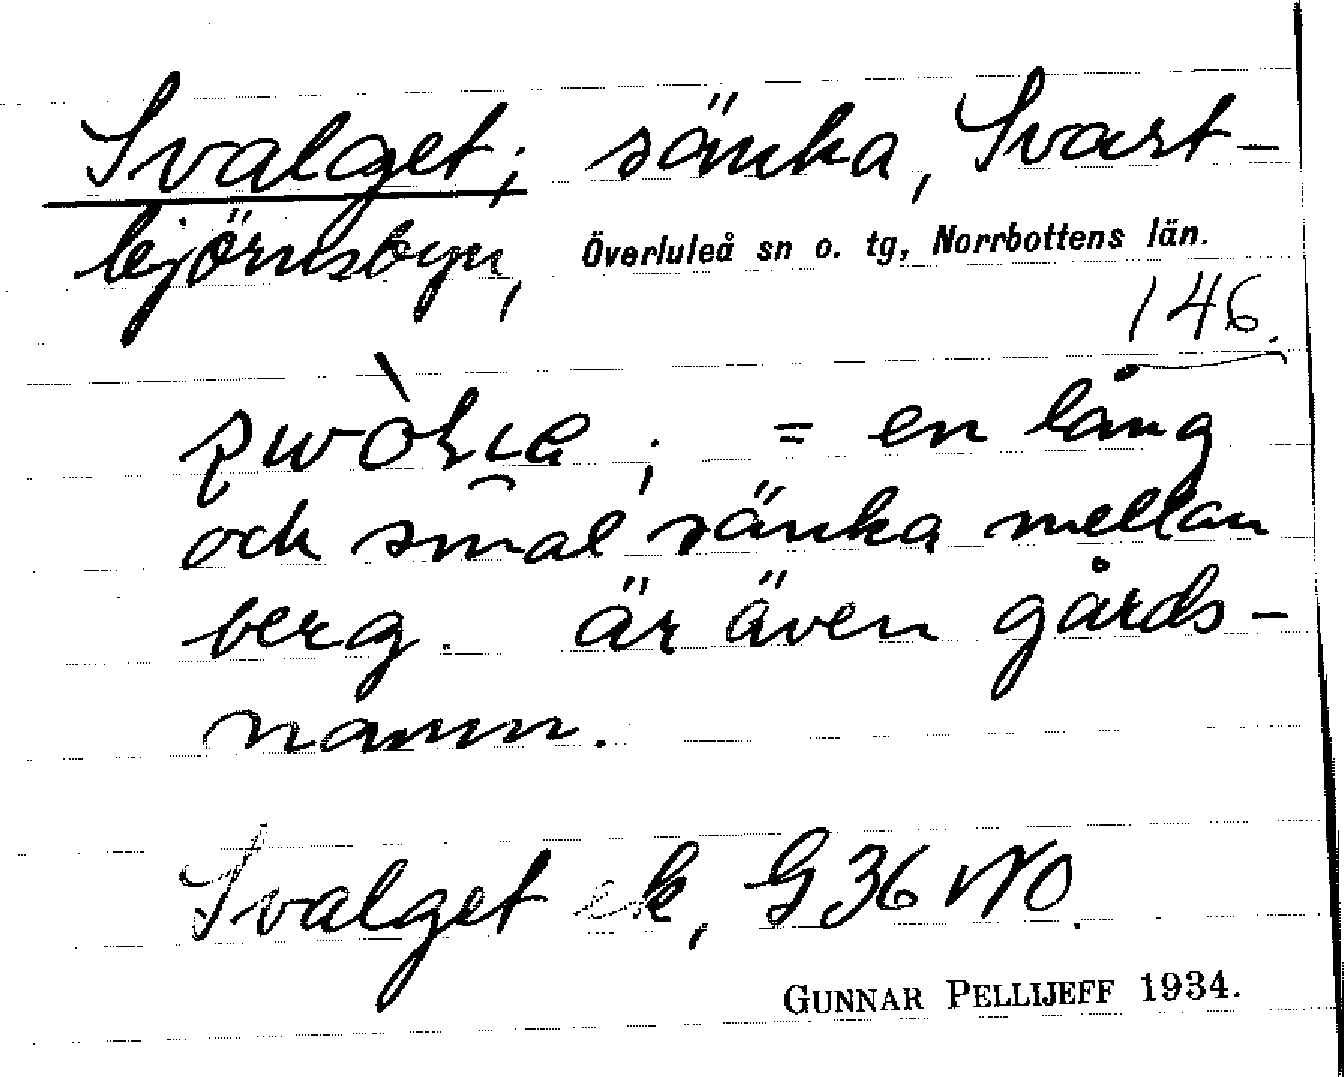 Svalget; sänka, Svart-
björnsbyn, Överluleå sn o. tg, Norrbottens län.
146.
; = en lång
och smal sänka mellan
berg. är även gårds-
namn.
Svalget ek, G 36 NO.
GUNNAR PELLIJEFF 1934.